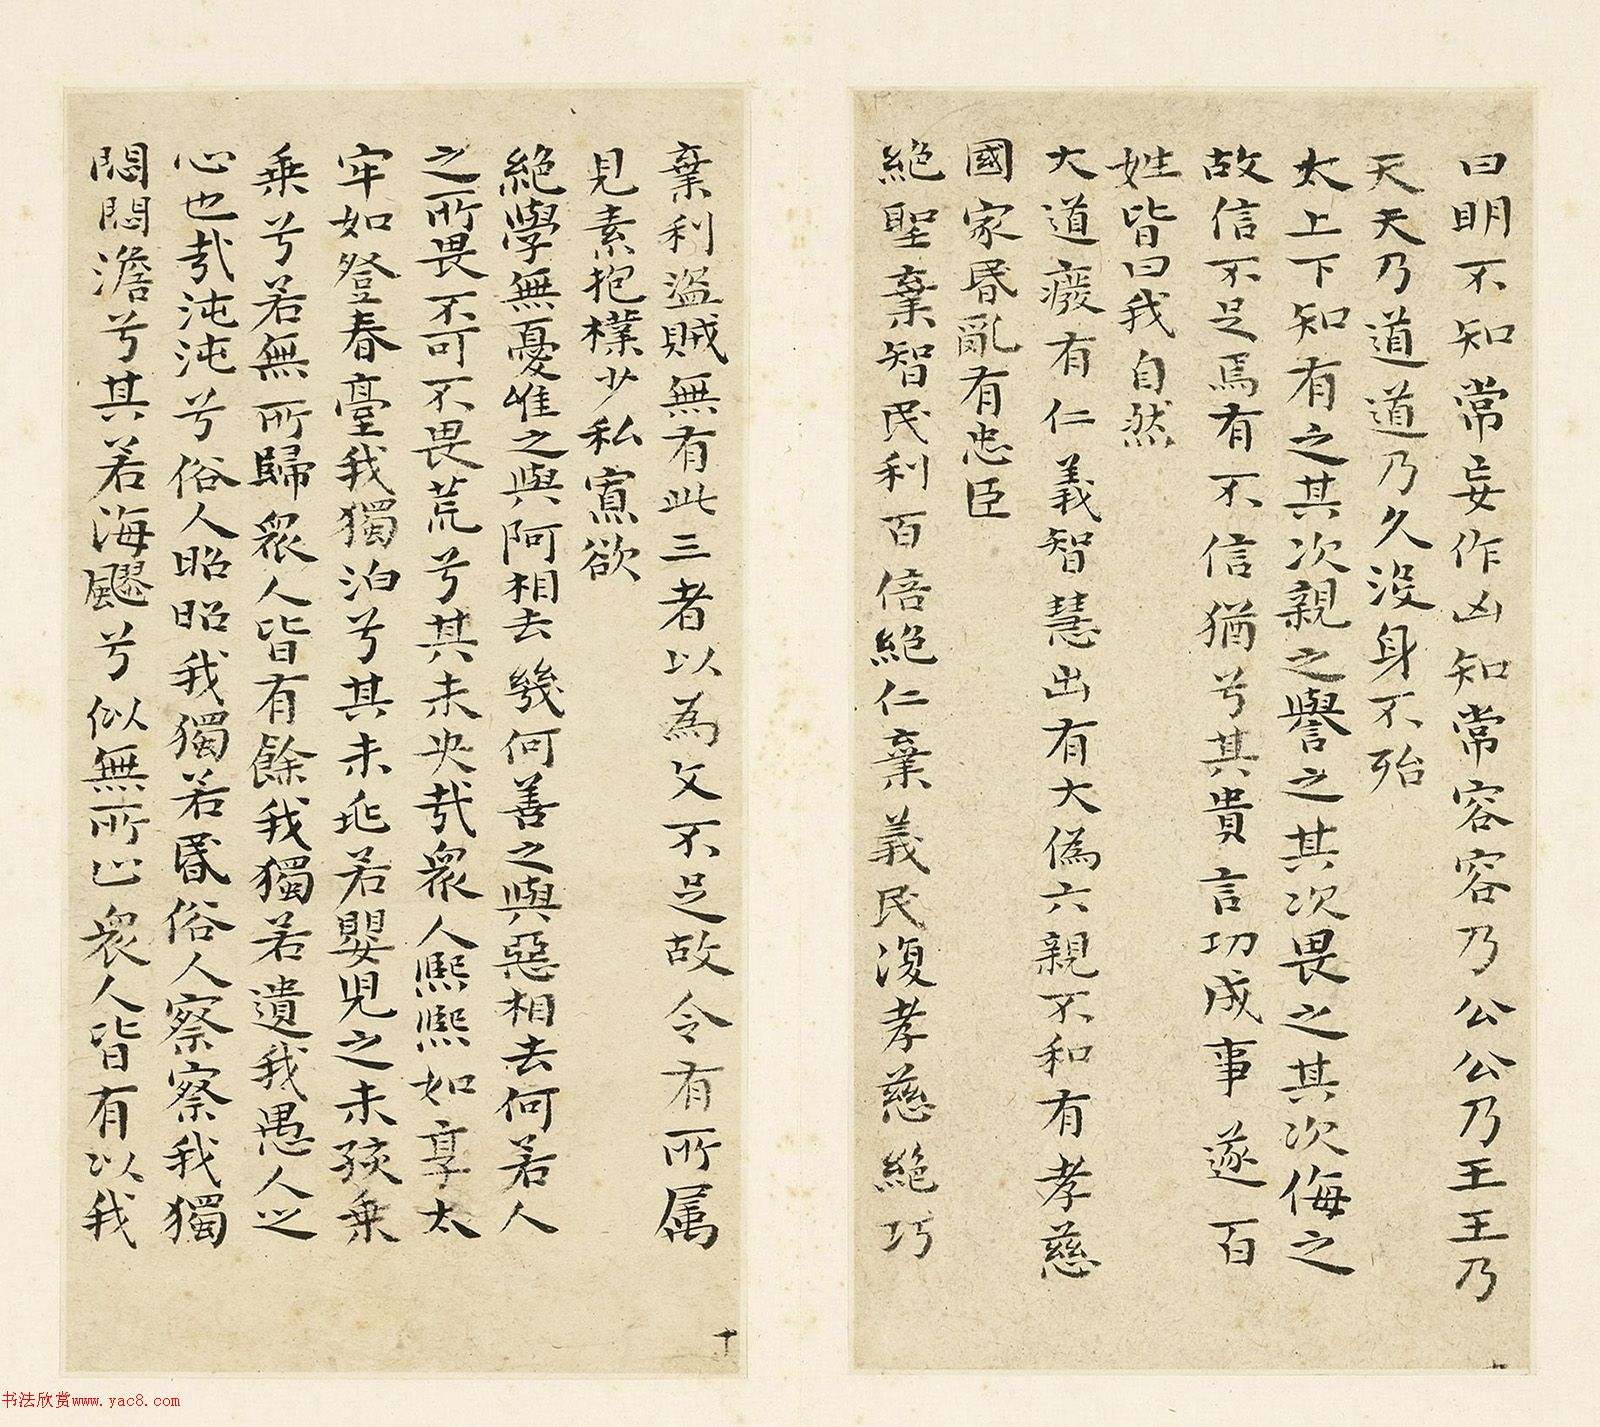 曰明不知常妄作凶知常容容乃公公乃王王乃
天天乃道道乃久沒身不殆
太上下知有之其次親之譽之其次畏之其次侮之
故信不足焉有不信猶兮其貴言功成事遂百
姓皆曰我自然
大道廢有仁義智慧出有大偽六親不和有孝慈
國家昬亂有忠臣
絕聖棄智民利百倍絕仁棄義民復孝慈絕巧
棄利盜賊無有此三者以為文不足故令有所属
見素抱樸少私寡欲
絕學無憂唯之與阿相去幾何善之與惡相去何若人
之所畏不可不畏荒兮其未央哉衆人熈熈如享太
牢如登春臺我獨泊兮其未兆若嬰兒之未孩乗
乗兮若無所歸衆人皆有餘我獨若遺我愚人之
心也哉沌沌兮俗人昭昭我獨若昬俗人察察我獨
悶悶澹兮其若海飂兮似無所止衆人皆有以我
十
书法欣赏www.yac8.com